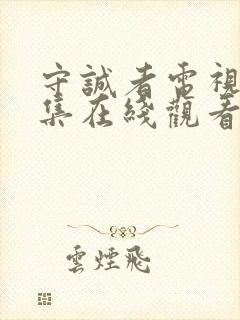 守誠者電視
集在綫觀看
雲煙飛